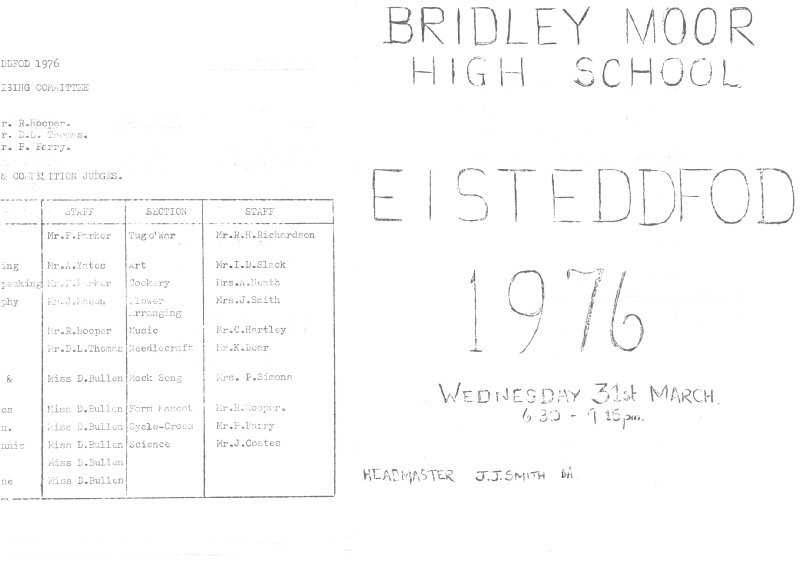 DDFOD 1976
ISING COMMITTEE
r. R.Hooper.
r. D.L. Thomas.
r. P. Parry.
& COMPETITION JUDGES.
STAFF SECTION STAFF
Mr.F.Parker Tug o'War Mr.R.H.Richardson
ing Mr.A.Yates Art Mr.I.D.Slack
peaking Mr.F.Parker Cookery Mrs.A.Heath
phy Mr.J.Mason Flower Mrs.J.Smith
arranging
Mr.R.Hooper Music Mr.C.Hartley
Mr.D.L.Thomas Needlecraft Mr.K.Dear
& Miss D.Bullen Rock Song Mrs. P.Simons
cs Miss D.Bullen Form Mascot Mr.R.Hooper.
n. Miss D.Bullen Cycle-Cross Mr.P.Parry
nnis Miss D.Bullen Science Mr.J.Coates
Miss D.Bullen
ne Miss D.Bullen
BRIDLEY MOOR
HIGH SCHOOL
EISTEDDFOD
1976
WEDNESDAY 31st MARCH
6.30 - 9.15pm.
HEADMASTER J.J.SMITH BA